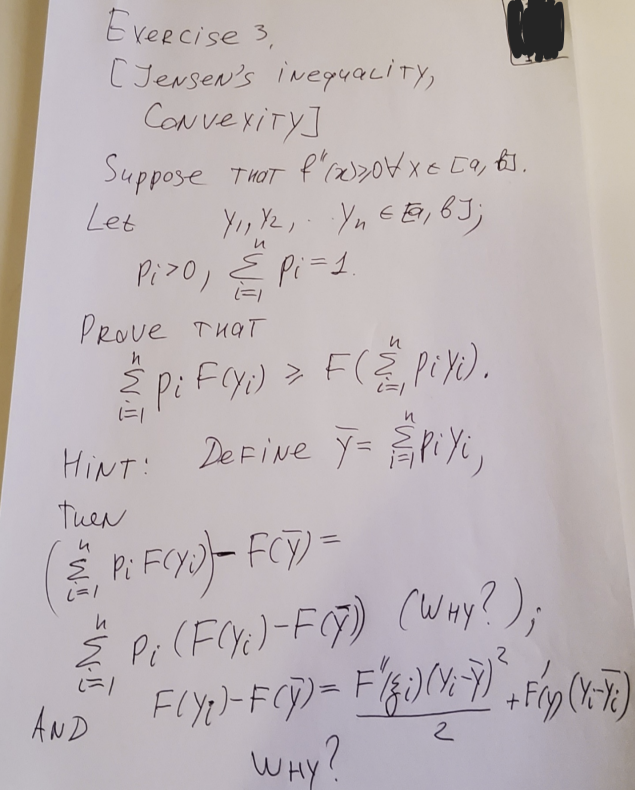 Exercise 3.
[Jensen's inequality,
Convexity]
Suppose that f''(x)≥0 ∀ x ∈ [a, b].
Let y₁, y₂, . . yₙ ∈ [a, b];
pᵢ>0, ∑ᵢ₌₁ⁿ pᵢ=1.
Prove that
∑ᵢ₌₁ⁿ pᵢ F(yᵢ) ≥ F(∑ᵢ₌₁ⁿ pᵢyᵢ).
Hint: Define ȳ= ∑ᵢ₌₁ⁿ pᵢyᵢ,
then
(∑ᵢ₌₁ⁿ pᵢ F(yᵢ)) - F(ȳ) =
∑ᵢ₌₁ⁿ pᵢ (F(yᵢ)-F(ȳ)) (Why?);
And F(yᵢ)-F(ȳ)= F''(ξᵢ)(yᵢ-ȳ)²/2 + F'(y)(yᵢ-ȳᵢ)
Why?